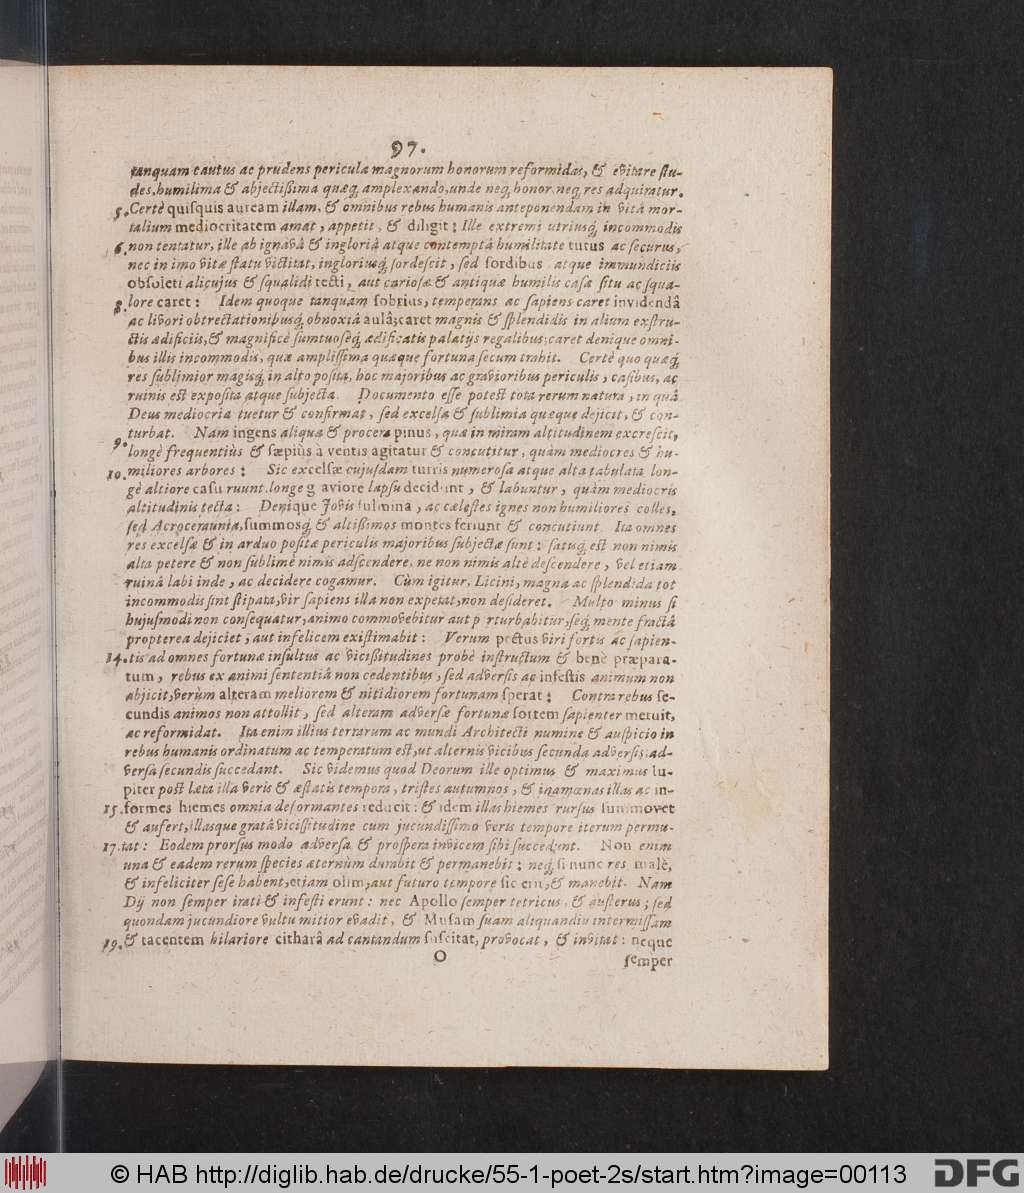 97.
tanquam cautus ac prudens pericula magnorum honorum reformidas, & evitare stu-
des, humilima & abjectißima quæq́; amplexando, unde neq́; honor, neq́; res adquiratur.
5. Certè quisquis auream illam, & omnibus rebus humanis anteponendam in vitâ mor-
talium mediocritatem amat, appetit, & diligit: Ille extremi utriusq́; incommodis
6. non tentatur, ille ab ignavâ & ingloriâ atque contemptâ humilitate tutus ac securus,
nec in imo vitæ statu victitat, ingloriusq́; sordescit, sed sordibus atque immundiciis
obsoleti alicujus & squalidi tecti, aut cariosæ & antiquæ humilis casæ situ ac squa-
8. lore caret: Idem quoque tanquam sobrius, temperans ac sapiens caret invidendâ
ac livori obtrectationibusq́; obnoxiâ aulâ; caret magnis & splendidis in alium exstru-
ctis ædificiis, & magnificè sumtuoseq́; ædificatis palatijs regalibus; caret denique omni-
bus illis incommodis, quæ amplissima quæque fortuna secum trahit. Certè quo quæq́;
res sublimior magisq́; in alto posita, hoc majoribus ac gravioribus periculis, casibus, ac
ruinis est exposita atque subjecta. Documento esse potest tota rerum natura, in quâ
Deus mediocria tuetur & confirmat, sed excelsa & sublimia quæque dejicit, & con-
turbat. Nam ingens aliqua & procera pinus, quæ in miram altitudinem excrescit,
9. longè frequentiùs & sæpiùs à ventis agitatur & concutitur, quàm mediocres & hu-
10. miliores arbores: Sic excelsæ cujusdam turris numerosa atque alta tabulata lon-
gè altiore casu ruunt, longe g aviore lapsu decidunt, & labuntur, quàm mediocris
altitudinis tecta: Denique Jovis fulmina, ac cælestes ignes non humiliores colles,
sed Acroceraunia, summosq́; & altißimos montes feriunt & concutiunt. Ita omnes
res excelsæ & in arduo positæ periculis majoribus subjectæ sunt: satiusq́; est non nimis
alta petere & non sublimè nimis adscendere, ne non nimis altè descendere, vel etiam
ruinâ labi inde, ac decidere cogamur. Cùm igitur, Licini, magna ac splendida tot
incommodis sint stipata, vir sapiens illa non expetat, non desideret. Multo minus si
hujusmodi non consequatur, animo commovebitur aut p rturbabitur, seq́; mente fractâ
propterea dejiciet, aut infelicem existimabit: Verum pectus viri fortis ac sapien-
14. tis ad omnes fortunæ insultus ac vicißitudines probè instructum & benè præpara-
tum, rebus ex animi sententiâ non cedentibus, sed adversis ac infestis animum non
abjicit, verùm alteram meliorem & nitidiorem fortunam sperat: Contra rebus se-
cundis animos non attollit, sed alteram adversæ fortunæ sortem sapienter metuit,
ac reformidat. Ita enim illius terrarum ac mundi Architecti numine & auspicio in
rebus humanis ordinatum ac temperatum est, ut alternis vicibus secunda adversis, ad-
versa secundis succedant. Sic videmus quod Deorum ille optimus & maximus Iu-
piter post læta illa veris & æstatis tempora, tristes autumnos, & inamœnas illas ac in-
15. formes hiemes omnia deformantes reducit: & idem illas hiemes rursus summovet
& aufert, illasque gratâ vicissitudine cum jucundissimo veris tempore iterum permu-
17. tat: Eodem prorsus modo adversa & prospera invicem sibi succedunt. Non enim
una & eadem rerum species æternùm durabit & permanebit: neq́; si nunc res malè,
& infeliciter sese habent, etiam olim, aut futuro tempore sic erit, & manebit. Nam
Dij non semper irati & infesti erunt: nec Apollo semper tetricus, & austerus; sed
quondam jucundiore vultu mitior evadit, & Musam suam aliquandiu intermissam
19. & tacentem hilariore citharâ ad cantandum suscitat, provocat, & invitat: neque
O
semper
© HAB http://diglib.hab.de/drucke/55-1-poet-2s/start.htm?image=00113
DFG